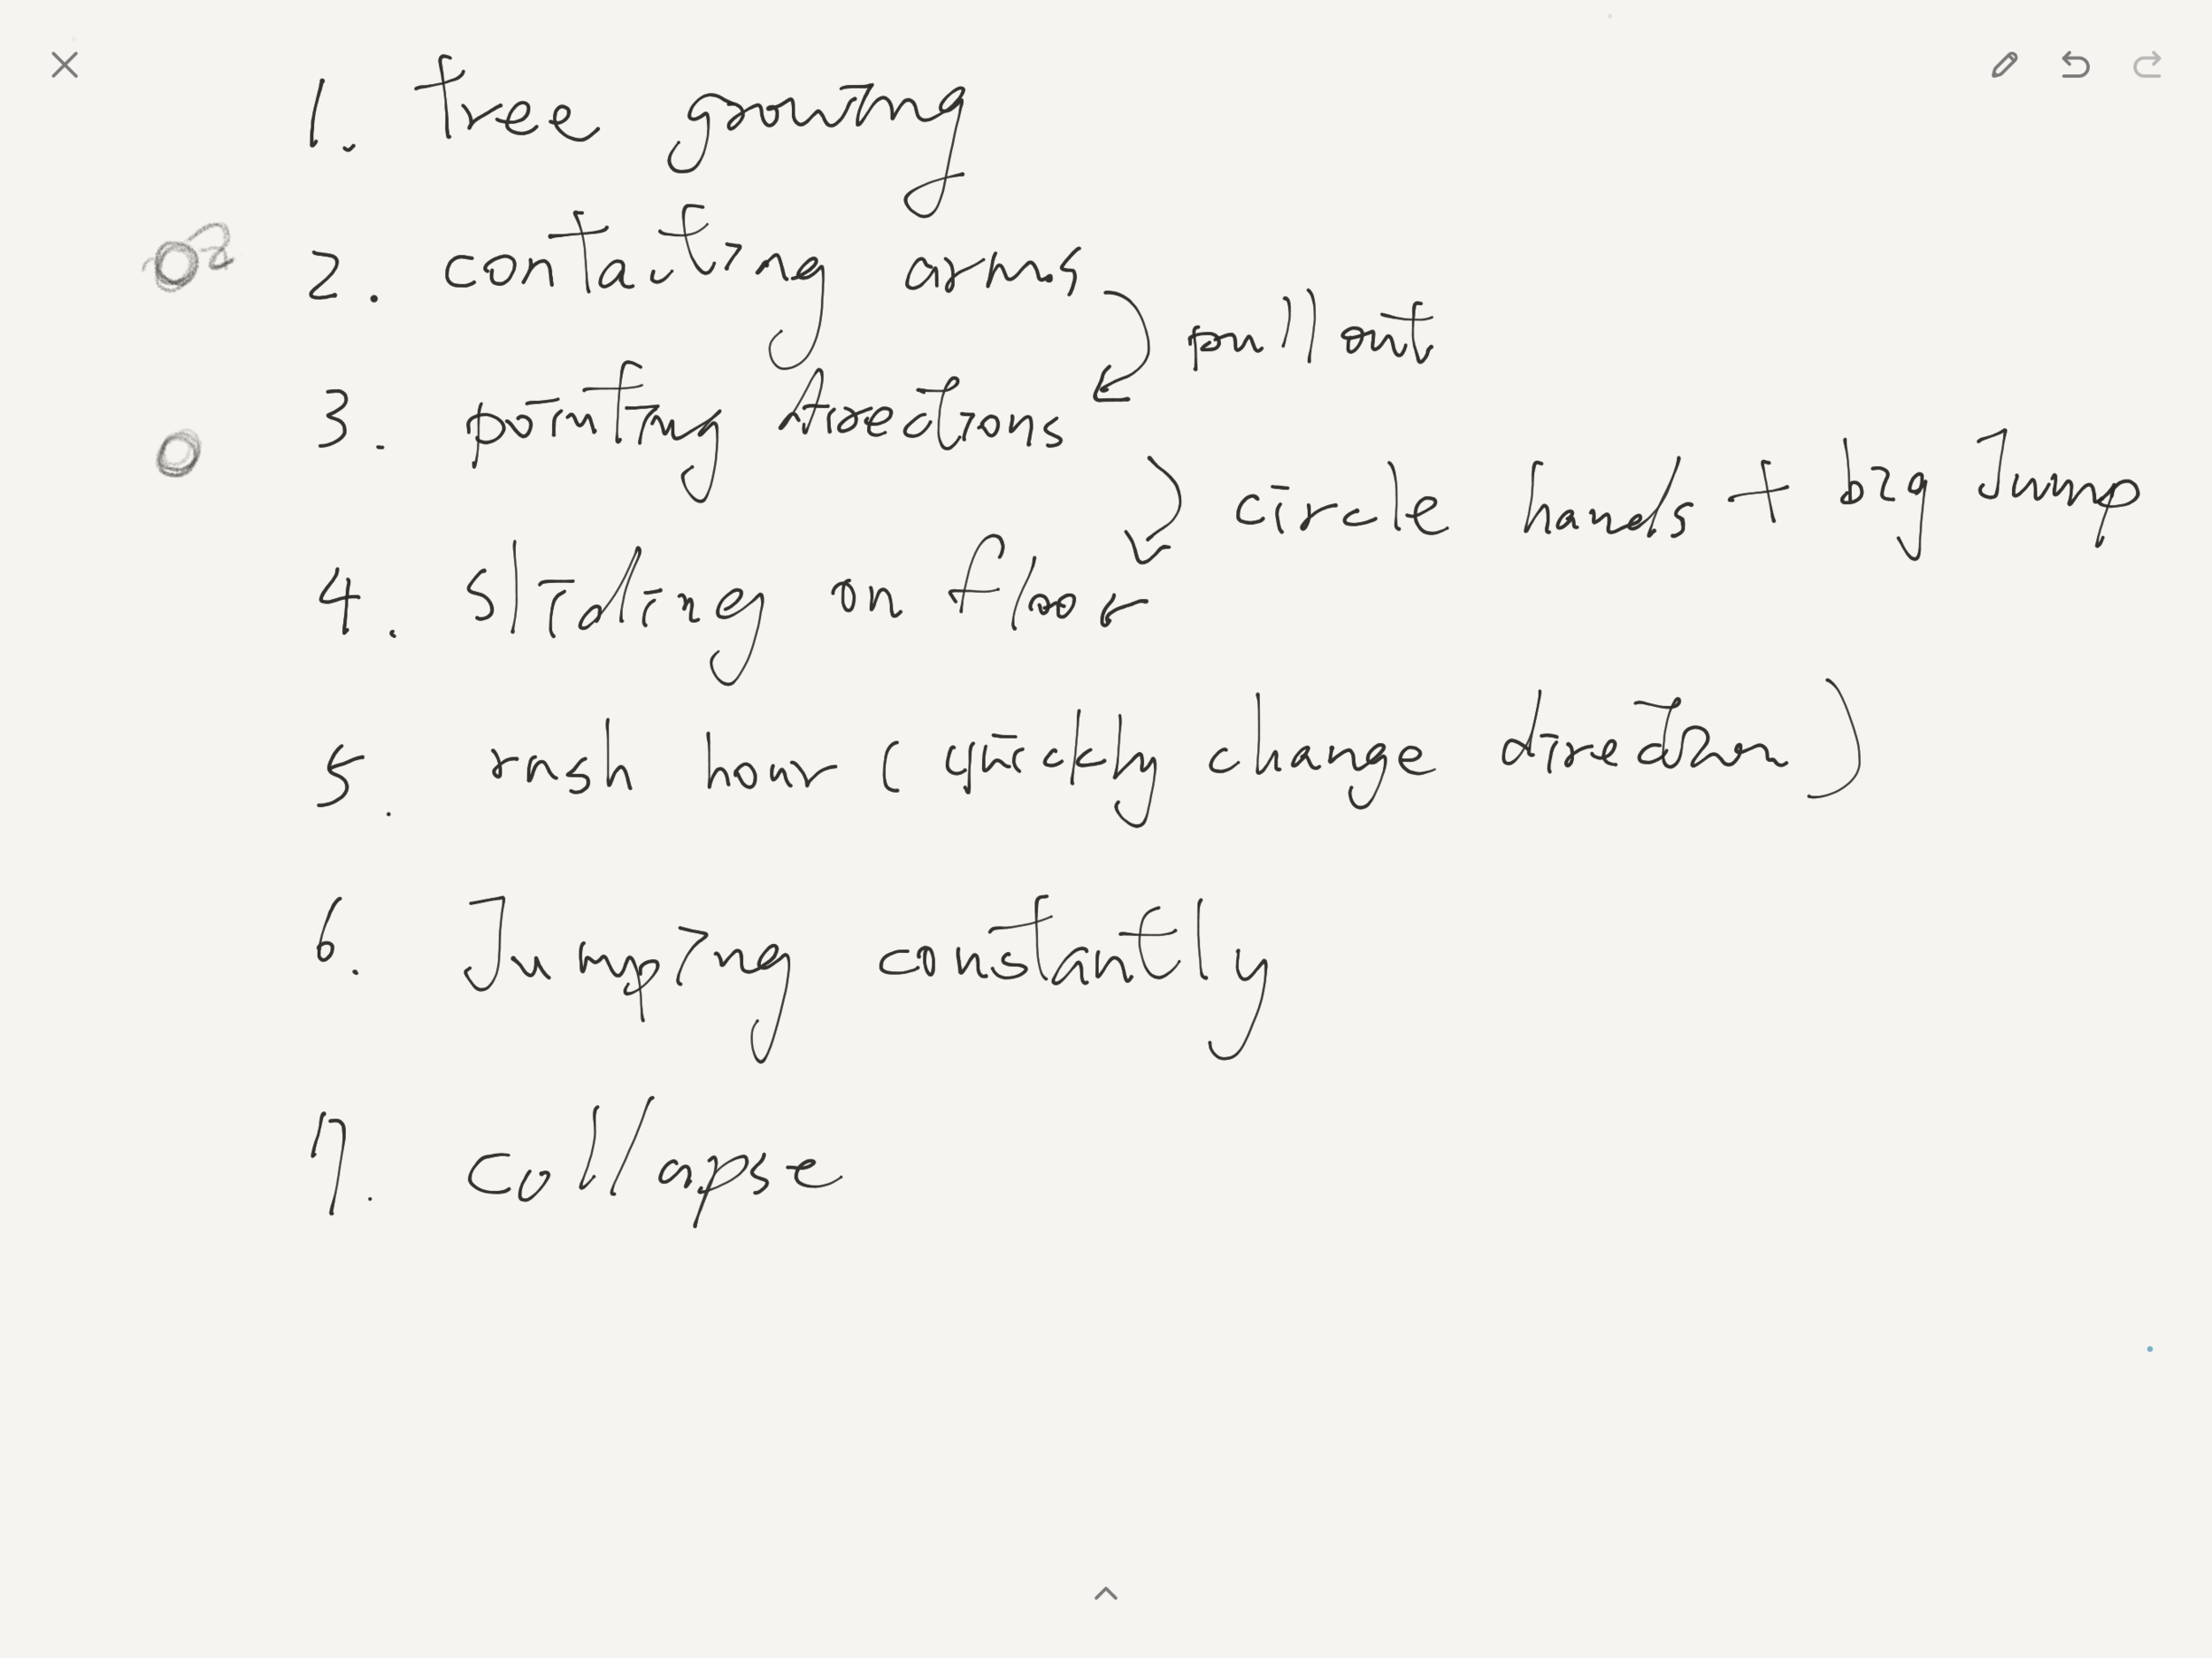 1. tree growing
2. contacting arms
pull out
3. pointing directions
circle hands + big Jump
4. Sliding on floor
5. rush hour ( quickly change direction )
6. Jumping constantly
7. collapse